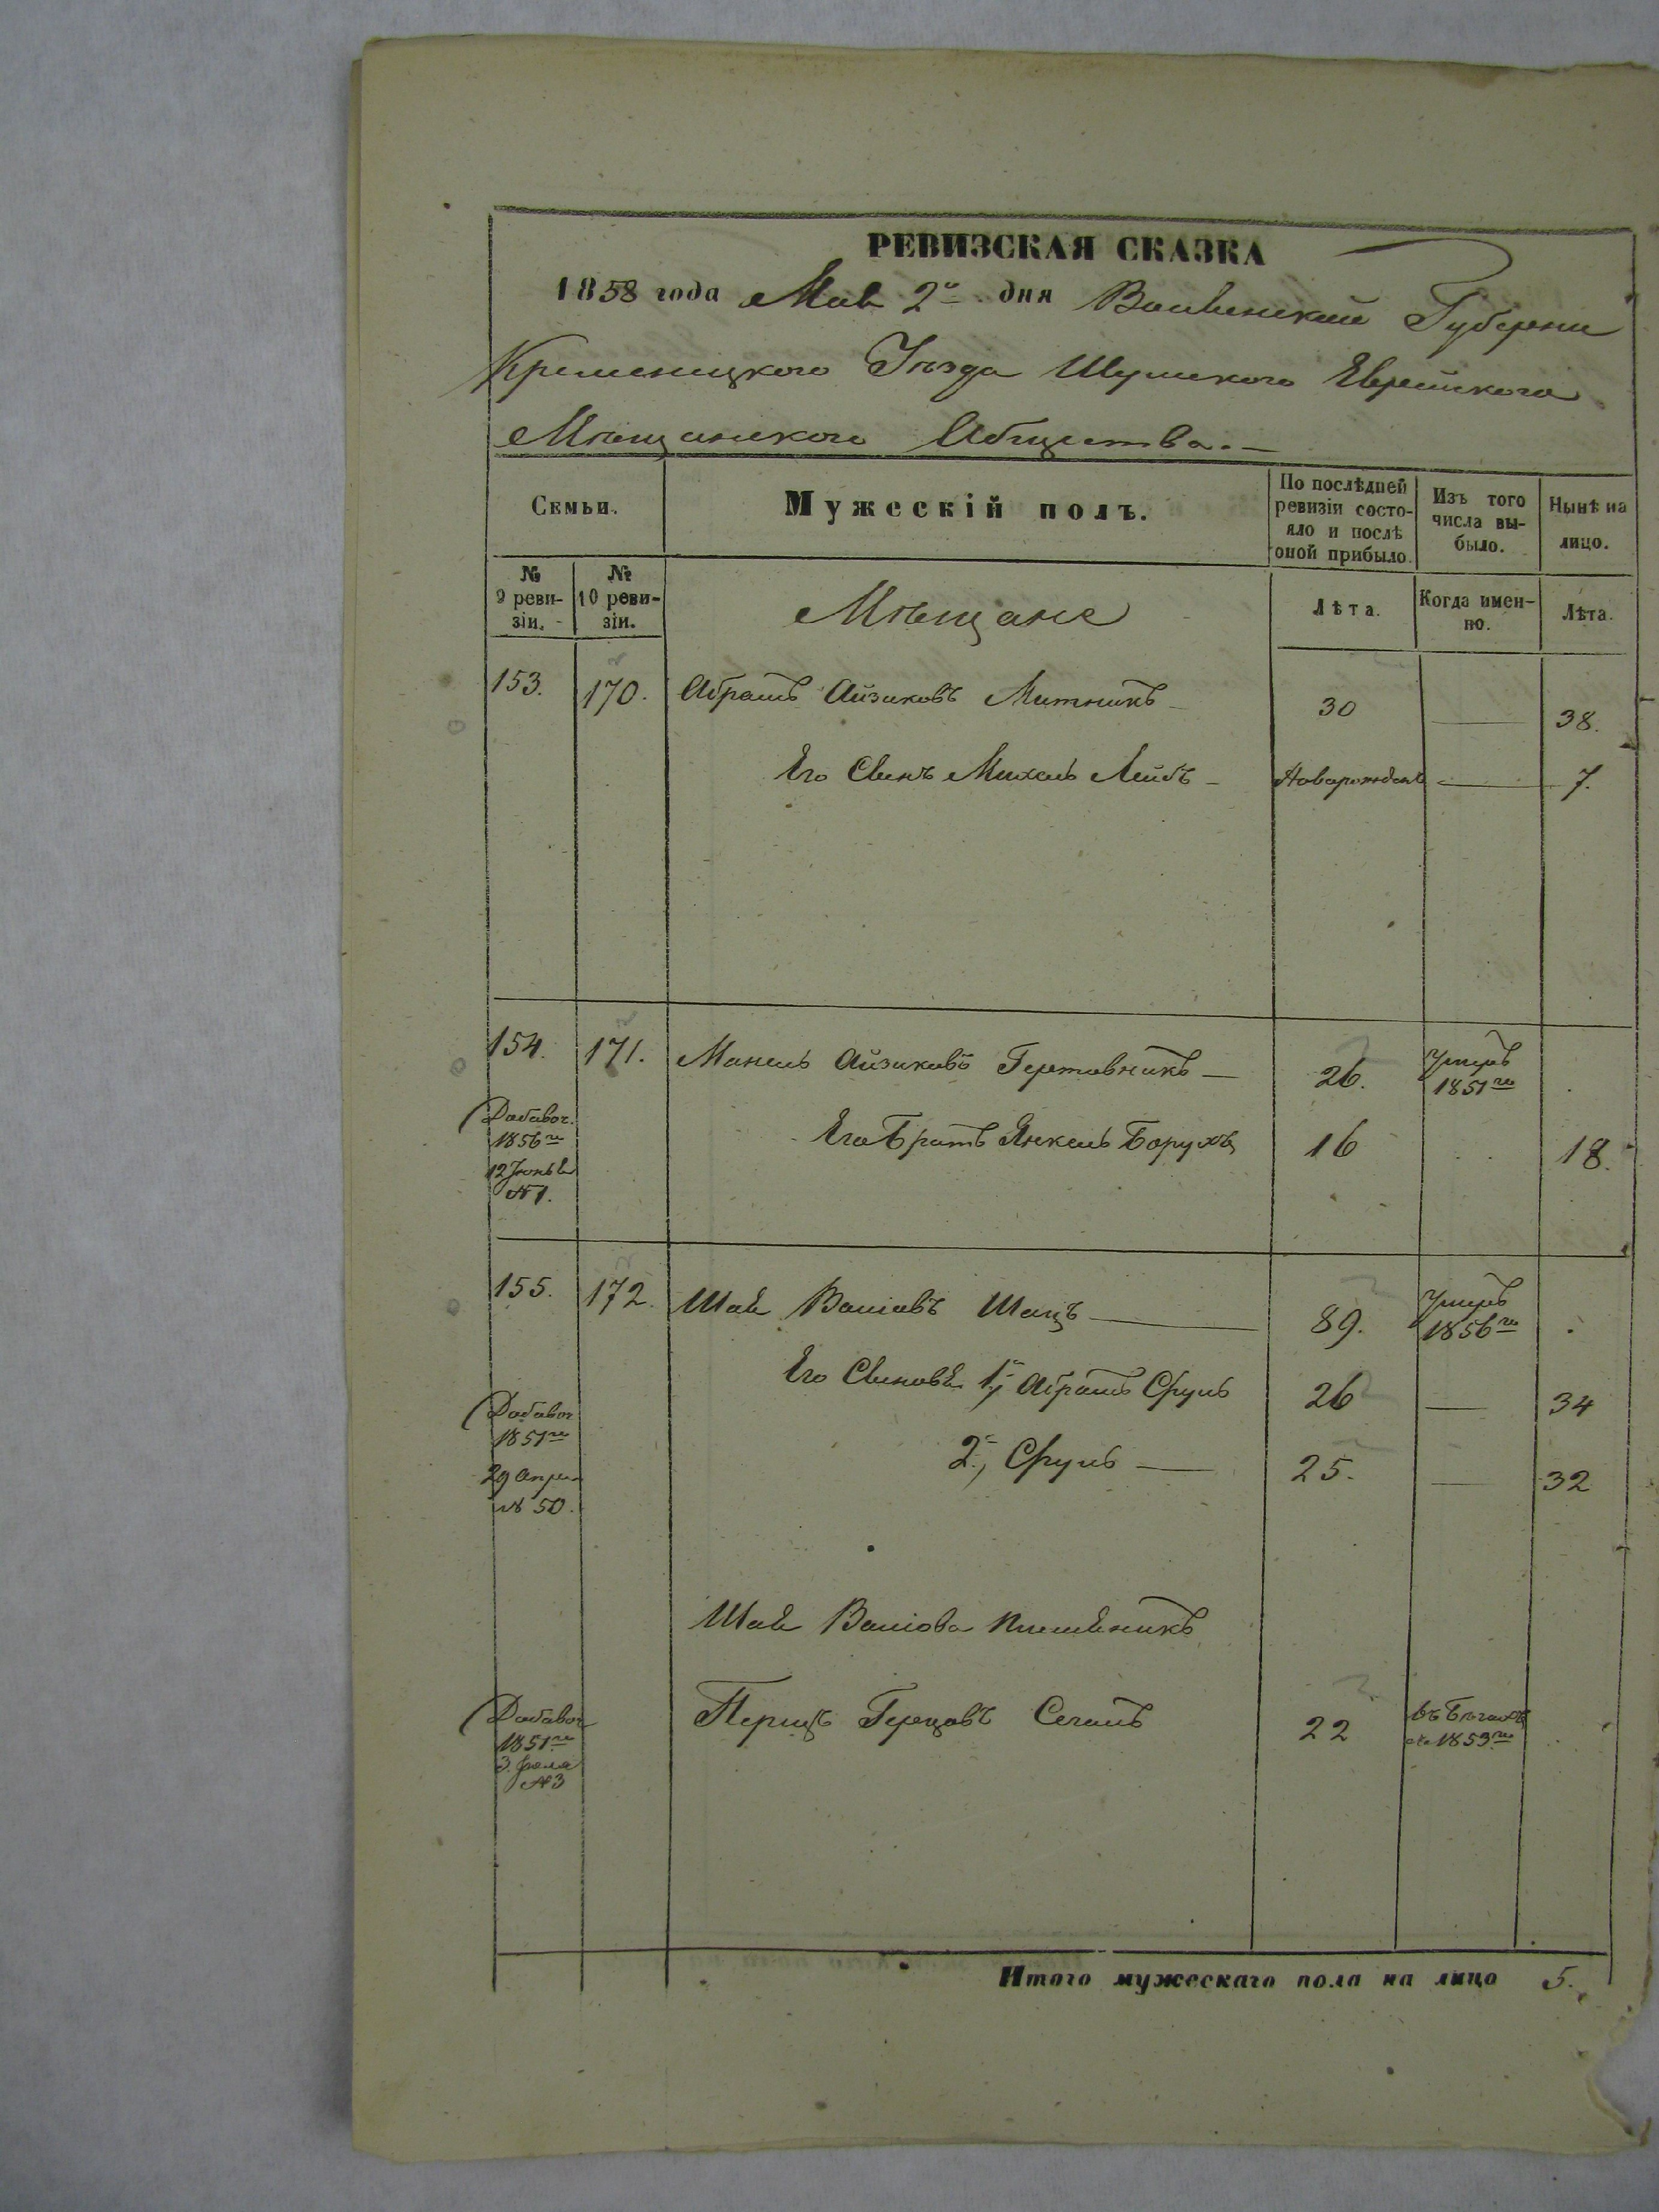 РЕВИЗСКАЯ СКАЗКА
1858 года Мая 2го дня Волынской Губернии
Кременецкого Уѣзда Шумского Еврейского
Мѣщанского Общества. —
Семьи.
Мужескій полъ.
По послѣдней ревизіи состояло и послѣ оной прибыло.
Изъ того числа выбыло.
Нынѣ на лицо.
№ 9 ревизіи.
№ 10 ревизіи.
Мѣщане
Лѣта.
Когда именно.
Лѣта.
153. 170. Абрамъ Айзиковъ Митникъ — 30 — 38.
Его Сынъ Михель Лейбъ — Наворожденъ — 7.
154. 171. Манель Айзиковъ — 26. Умеръ 1851го
Добавоч. 1856го 12 Іюня № 1.
Его Братъ Янкель Борухъ 16 18.
155. 172. Шая Волковъ Шацъ — 89. Умеръ 1856го
Его Сыновья 1й Абрамъ Сруль 26 — 34
Добавоч 1851го 29 Апреля № 50.
2й, Сруль — 25. — 32
Шая
Добавоч 1851го 3. Іюля № 3
Перецъ Герцовъ 22 въ Бѣгахъ съ 1853го
Итого мужескаго пола на лицо 5.